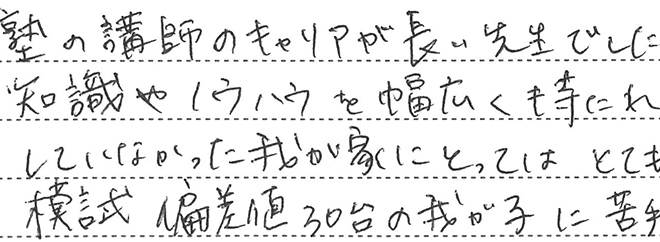 塾の講師のキャリアが長い先生でした
知識やノウハウを幅広く持たれ
していなかった我が家にとっては とても
模試 偏差値30台の我が子に苦手